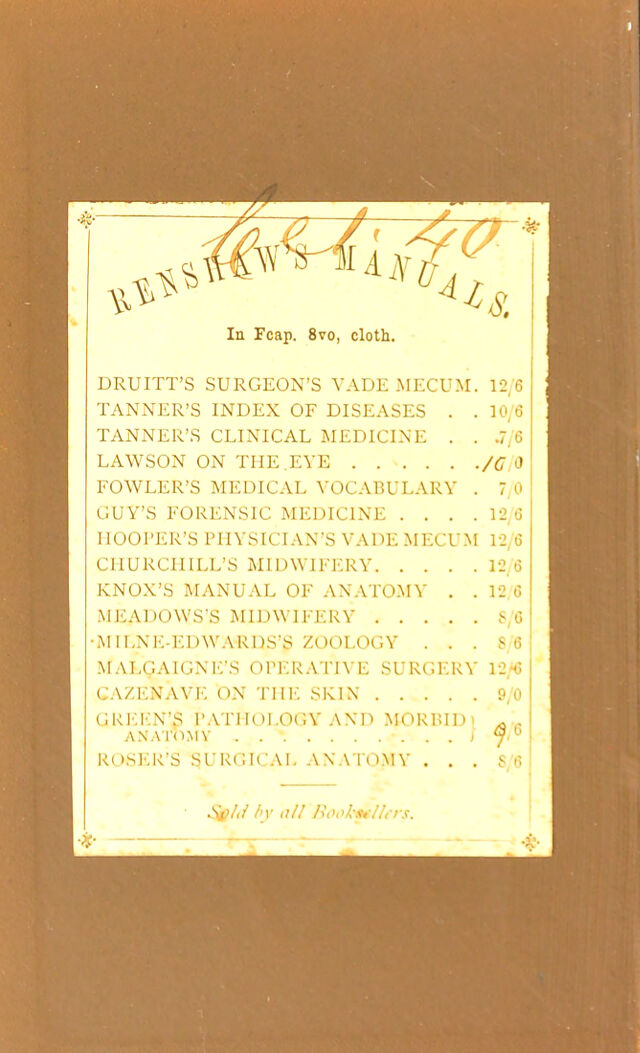 40
RENSHAW'S MANUALS.
In Fcap. 8vo, cloth.
DRUITT'S SURGEON'S VADE MECUM. 12/6
TANNER'S INDEX OF DISEASES . . 10/6
TANNER'S CLINICAL MEDICINE . . 7/6
LAWSON ON THE EYE . . . . . . 10/0
FOWLER'S MEDICAL VOCABULARY . 7/0
GUY'S FORENSIC MEDICINE . . . . 12/6
HOOPER'S PHYSICIAN'S VADE MECUM 12/6
CHURCHILL'S MIDWIFERY. . . . . 12/6
KNOX'S MANUAL OF ANATOMY . . 12/6
MEADOWS'S MIDWIFERY . . . . . 8/6
MILNE-EDWARDS'S ZOOLOGY . . . 8/6
MALGAIGNE'S OPERATIVE SURGERY 12/6
CAZENAVE ON THE SKIN . . . . . 9/0
GREEN'S PATHOLOGY AND MORBID }
ANATOMY . . . . . . . . . . } 9/6
ROSER'S SURGICAL ANATOMY . . . 8/6
Sold by all Booksellers.